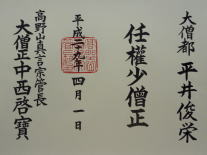 大僧都 平井俊栄
任權少僧正
平成二十九年四月一日
高野山真言宗管長
大僧正中西啓寶